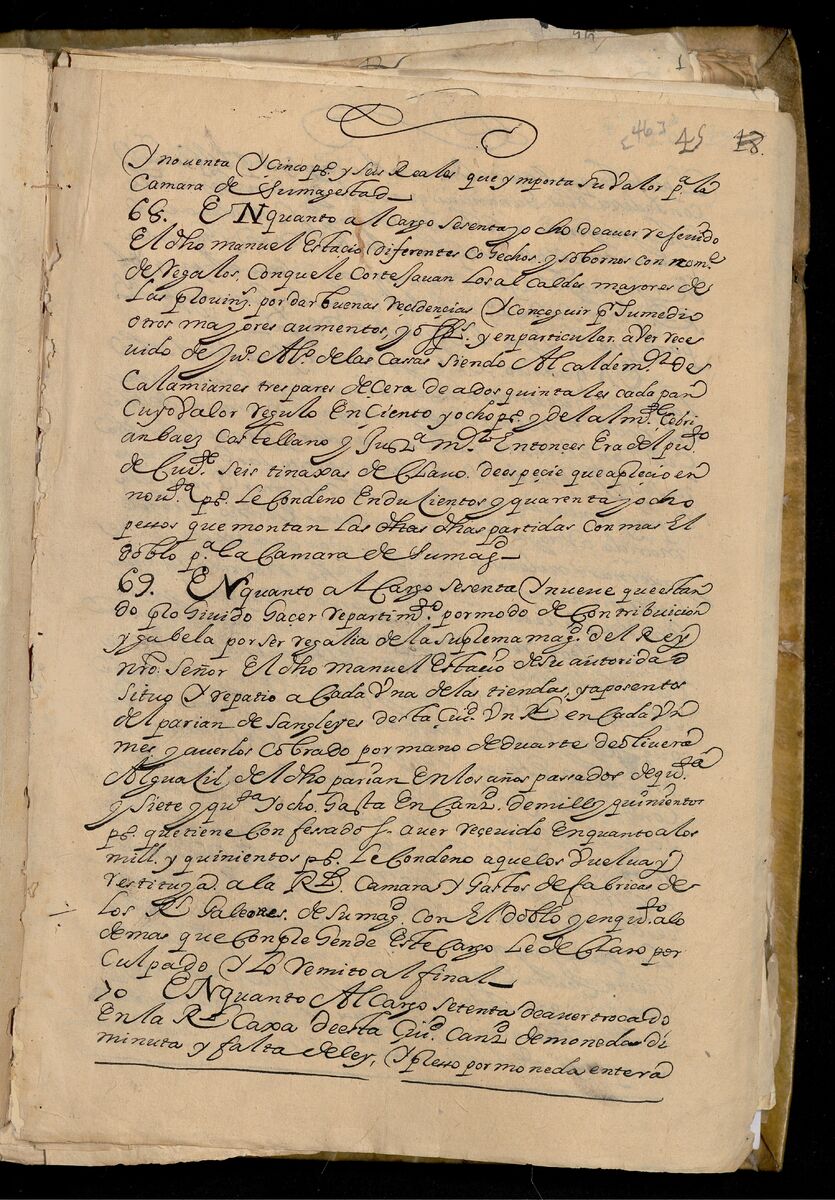 463 45 18.
Y noventa Y cinco ps. y seis Reales que ymporta su valor pa. la
Camara de Su magestad
68. EN quanto al Cargo sesenta y ocho de aver reseuido
El dho manuel Estacio diferentes Cohechos. y sobornos con nome.
de regalos, Con que le Cortejauan los alcaldes mayores de
Las provins. por dar buenas recidencias Y Conceguir pr. su medio
otros mayores aumentos, y offs. y en particular. aver rece
uido de Ju. Alo. de las Cassas siendo Alcalde mor. de
Calamianes tres pares de cera de a dos quintales cada par
Cuyo valor regulo En Ciento y ocho ps. y del alme. Cebri
an baez Castellano y Justa. mor. Entonces Era del pu.to
de Cui.te seis tinaxas de Clavo. de espeçie que apreçio en
nou.ta ps. Le Condeno En duçientos y quarenta y ocho
pessos que montan Las dhas dhas partidas Con mas El
doblo pa. la Camara de Su magd.
69. EN quanto al Cargo sesenta Y nueve que estan
do prohiuido haçer repartimto. por modo de Contribuicion
y gabela por ser regalia de la suprema magd. del Rey
nro. Señor El dho manuel Estacio de su autoridad
situo Y repatio a Cada Vna de las tiendas, y aposentos
del parian de sangleyes desta Ciud. Vn Rl. en Cada Vn
mes y auerlos Cobrado por mano de duarte de olivera
Alguaçil, del dho parian En los años passados de qu.ta
y siete y qu.ta y ocho. hasta En Cand. de mill y quinientos
ps. que tiene Confessado aver reçeuido En quanto a los
mill. y quinientos ps. Le Condeno a que los vuelva y
restituya. a la Rl. Camara Y Gastos de fabricas de
Los Rs. Galeones. de Su magd. con El doblo y en qto. a lo
demas que Conprehende Este Cargo Le declaro por
Culpado Y Lo remito al final
70 EN quanto Al Cargo setenta de aver trocado
En la Rl. Caxa de esta Ciud. Cand. de moneda di
minuta y falta de ley, Y pesso por moneda entera